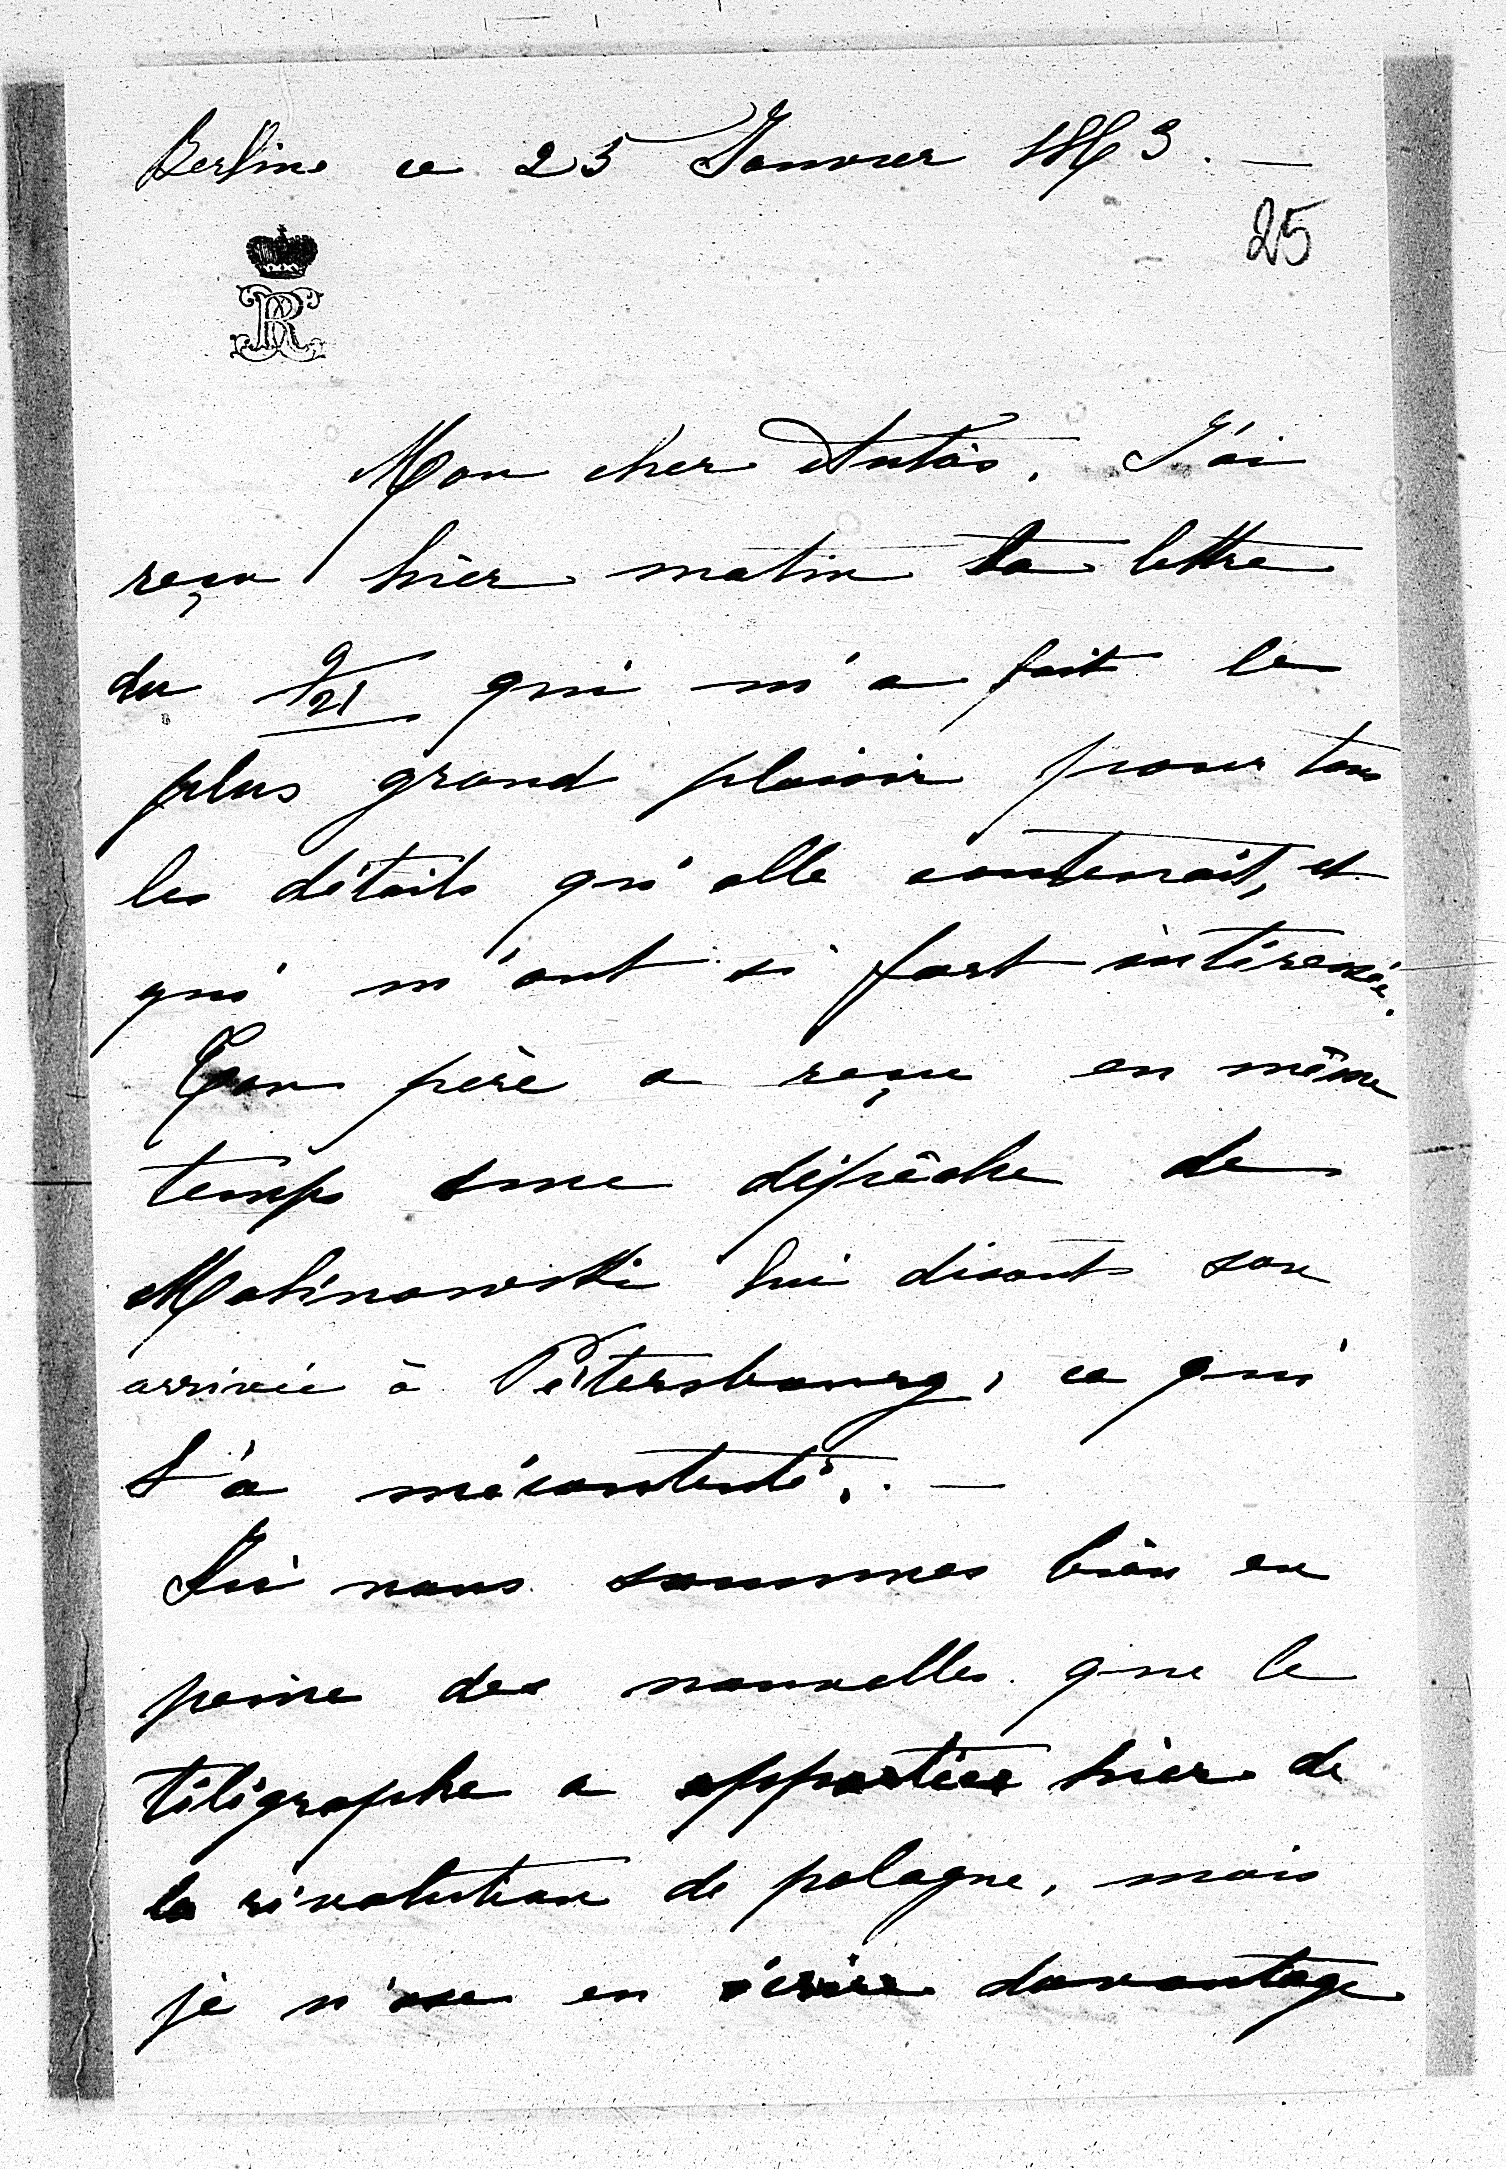 Berlin ce 25 Janvier 1863. —
25
Mon cher Antòs. J'ai
reçu hièr matin ta lettre
du 9/21 qui m'a fait le
plus grand plaisir pour tous
les détails qu'elle contenait, et
qui m'ont si fort intéressée.
Ton père a reçu en même
temps une dépêche de
Malinowski lui disant son
arrivée à Pétersbourg, ce qui
l'a mécontenté. —
Ici nous sommes bièn en
peine des nouvelles que le
télégraphe a apportées hièr de
la révolution de pologne, mais
je n'ose en écrire davantage